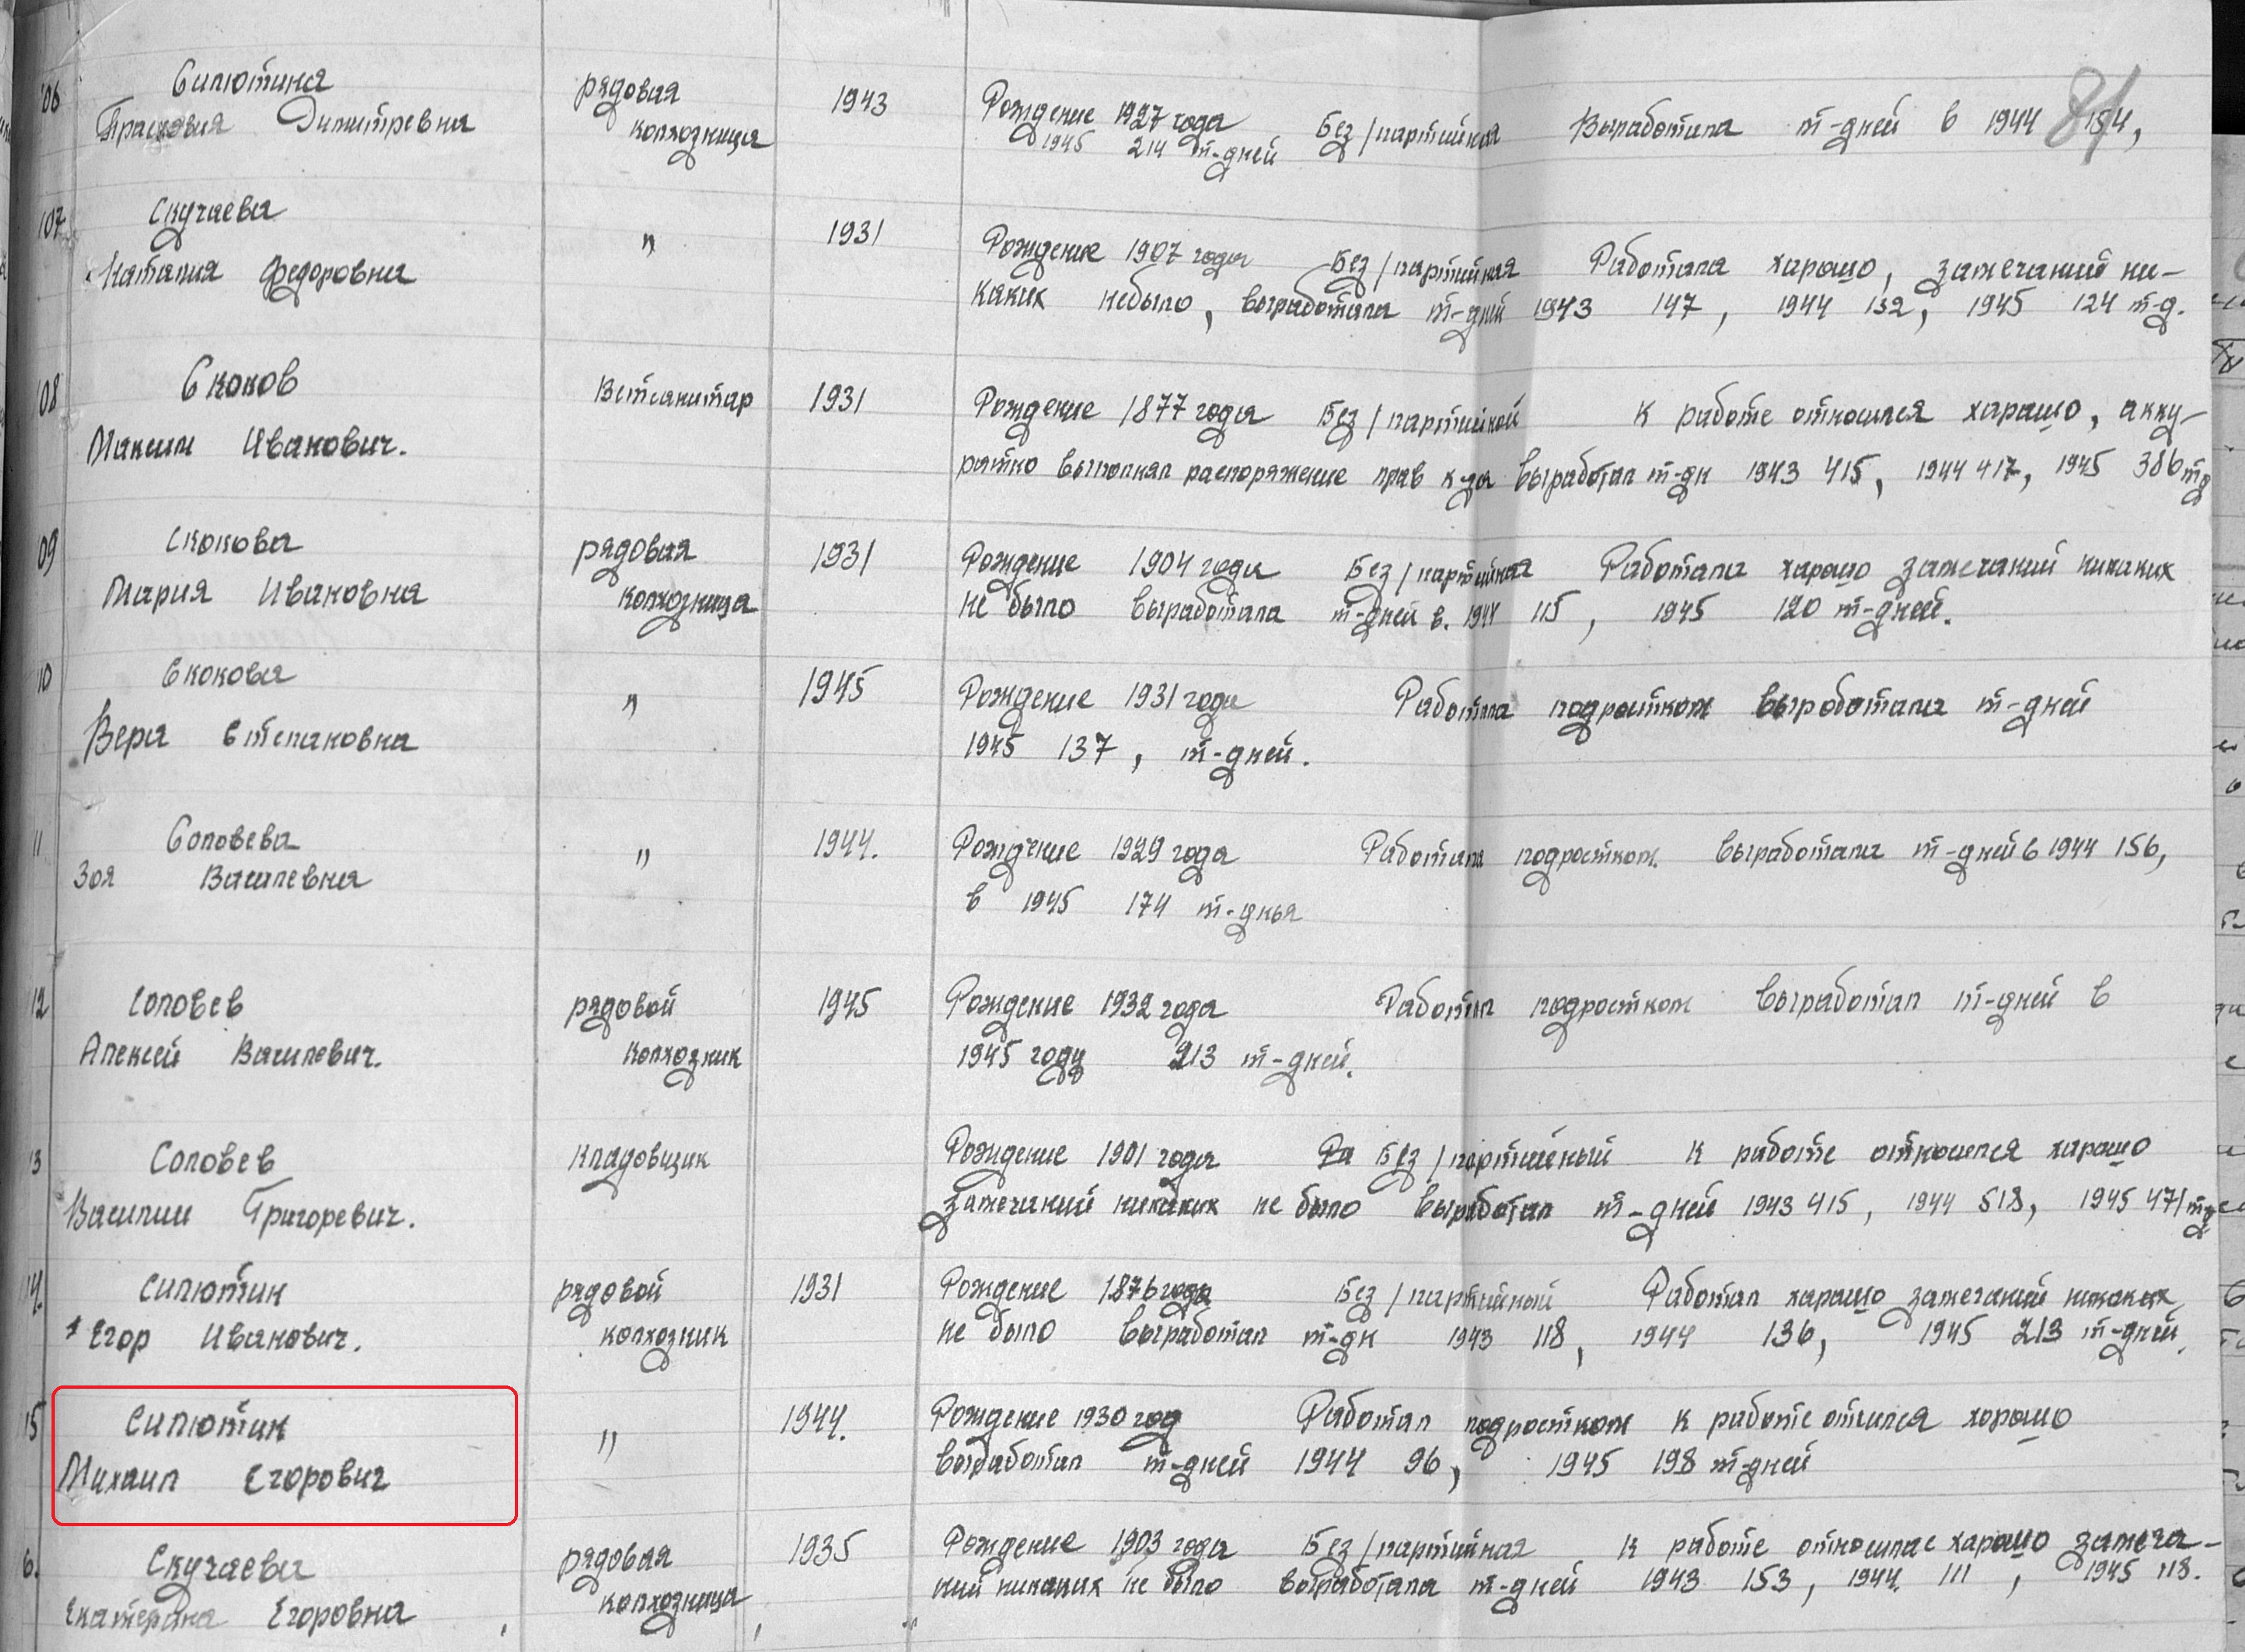 81
106 Силютина рядовая 1943 Рождение 1927 года Без/партийная Выработала т-дней в 1944 154,
Прасковия Димитревна колхозница 1945 214 т-дней
107 Скучаева " 1931 Рождение 1907 года Без/партийная Работала харошо, замечаний ни-
Наталия Федоровна каких небыло, выработала т-дней 1943 147, 1944 132, 1945 124 т-д.
108 Скоков Ветсанитар 1931 Рождение 1877 года Без/партийной К работе относился харашо, акку-
Максим Иванович. ратно выполнял распоряжение прав к-за выработал т-дн 1943 415, 1944 417, 1945 386 тд
09 Скокова рядовая 1931 Рождение 1904 года Без/партийная Работала харошо замечаний никаких
Мария Ивановна колхозница не было выработала т-дней в. 1944 115, 1945 120 т-дней.
10 Скокова " 1945 Рождение 1931 года Работала подростком выроботала т-дней
Вера Степановна 1945 137, т-дней.
11 Соловева " 1944. Рождение 1929 года Работала подростком. выработала т-дней в 1944 156,
Зоя Василевна в 1945 174 т-дня
12 Соловев рядовой 1945 Рождение 1932 года Работал подростком выработал т-дней в
Алексей Василевич. колхозник 1945 году 213 т-дней.
13 Соловев кладовщик Рождение 1901 года Ра Без/партийный К работе относился харашо
Василии Григоревич. замечаний никаких не было выработал т-дней 1943 415, 1944 518, 1945 471 тд
14. Силютин рядовой 1931 Рождение 1876 года Без/партийный Работал харашо замечаний никаких
Егор Иванович. колхозник не было выработал т-дн 1943 118, 1944 136, 1945 213 т-дней.
15 Силютин " 1944. Рождение 1930 год Работал подростком к работе отнился хорошо
Михаил Егорович выработал т-дней 1944 96, 1945 198 т-дней
6. Скучаева рядовая 1935 Рождение 1903 года Без/партийная К работе относилас харашо замеча-
Екатерина Егоровна колхозница ний никаких не было выработала т-дней 1943 153, 1944. 111, 1945 118.